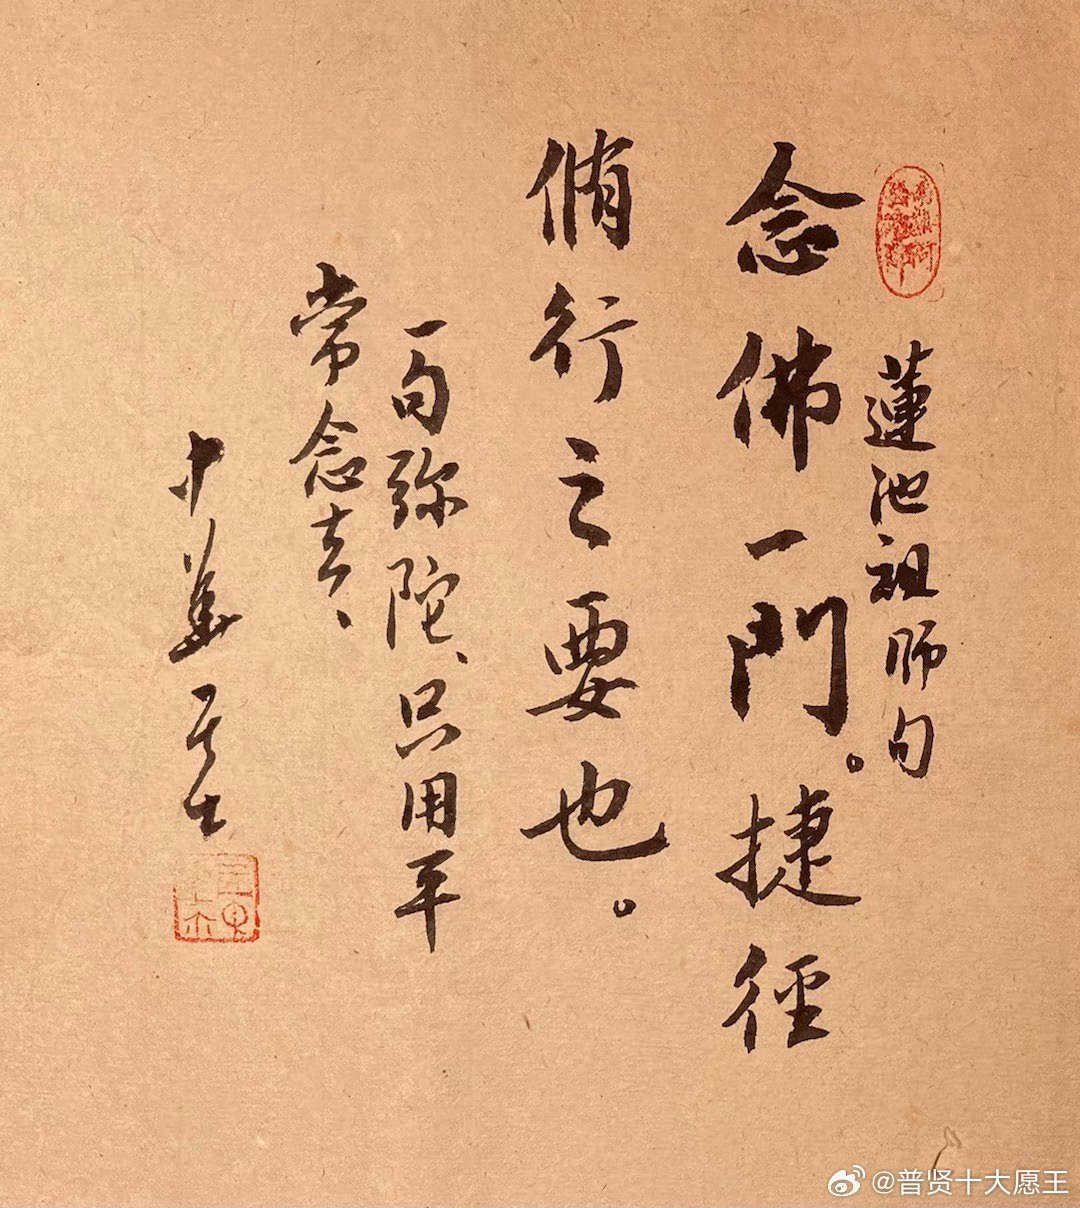 蓮池祖師句
念佛一門。捷徑
脩行之要也。
一句弥陀、只用平
常念去、
居士
@普贤十大愿王